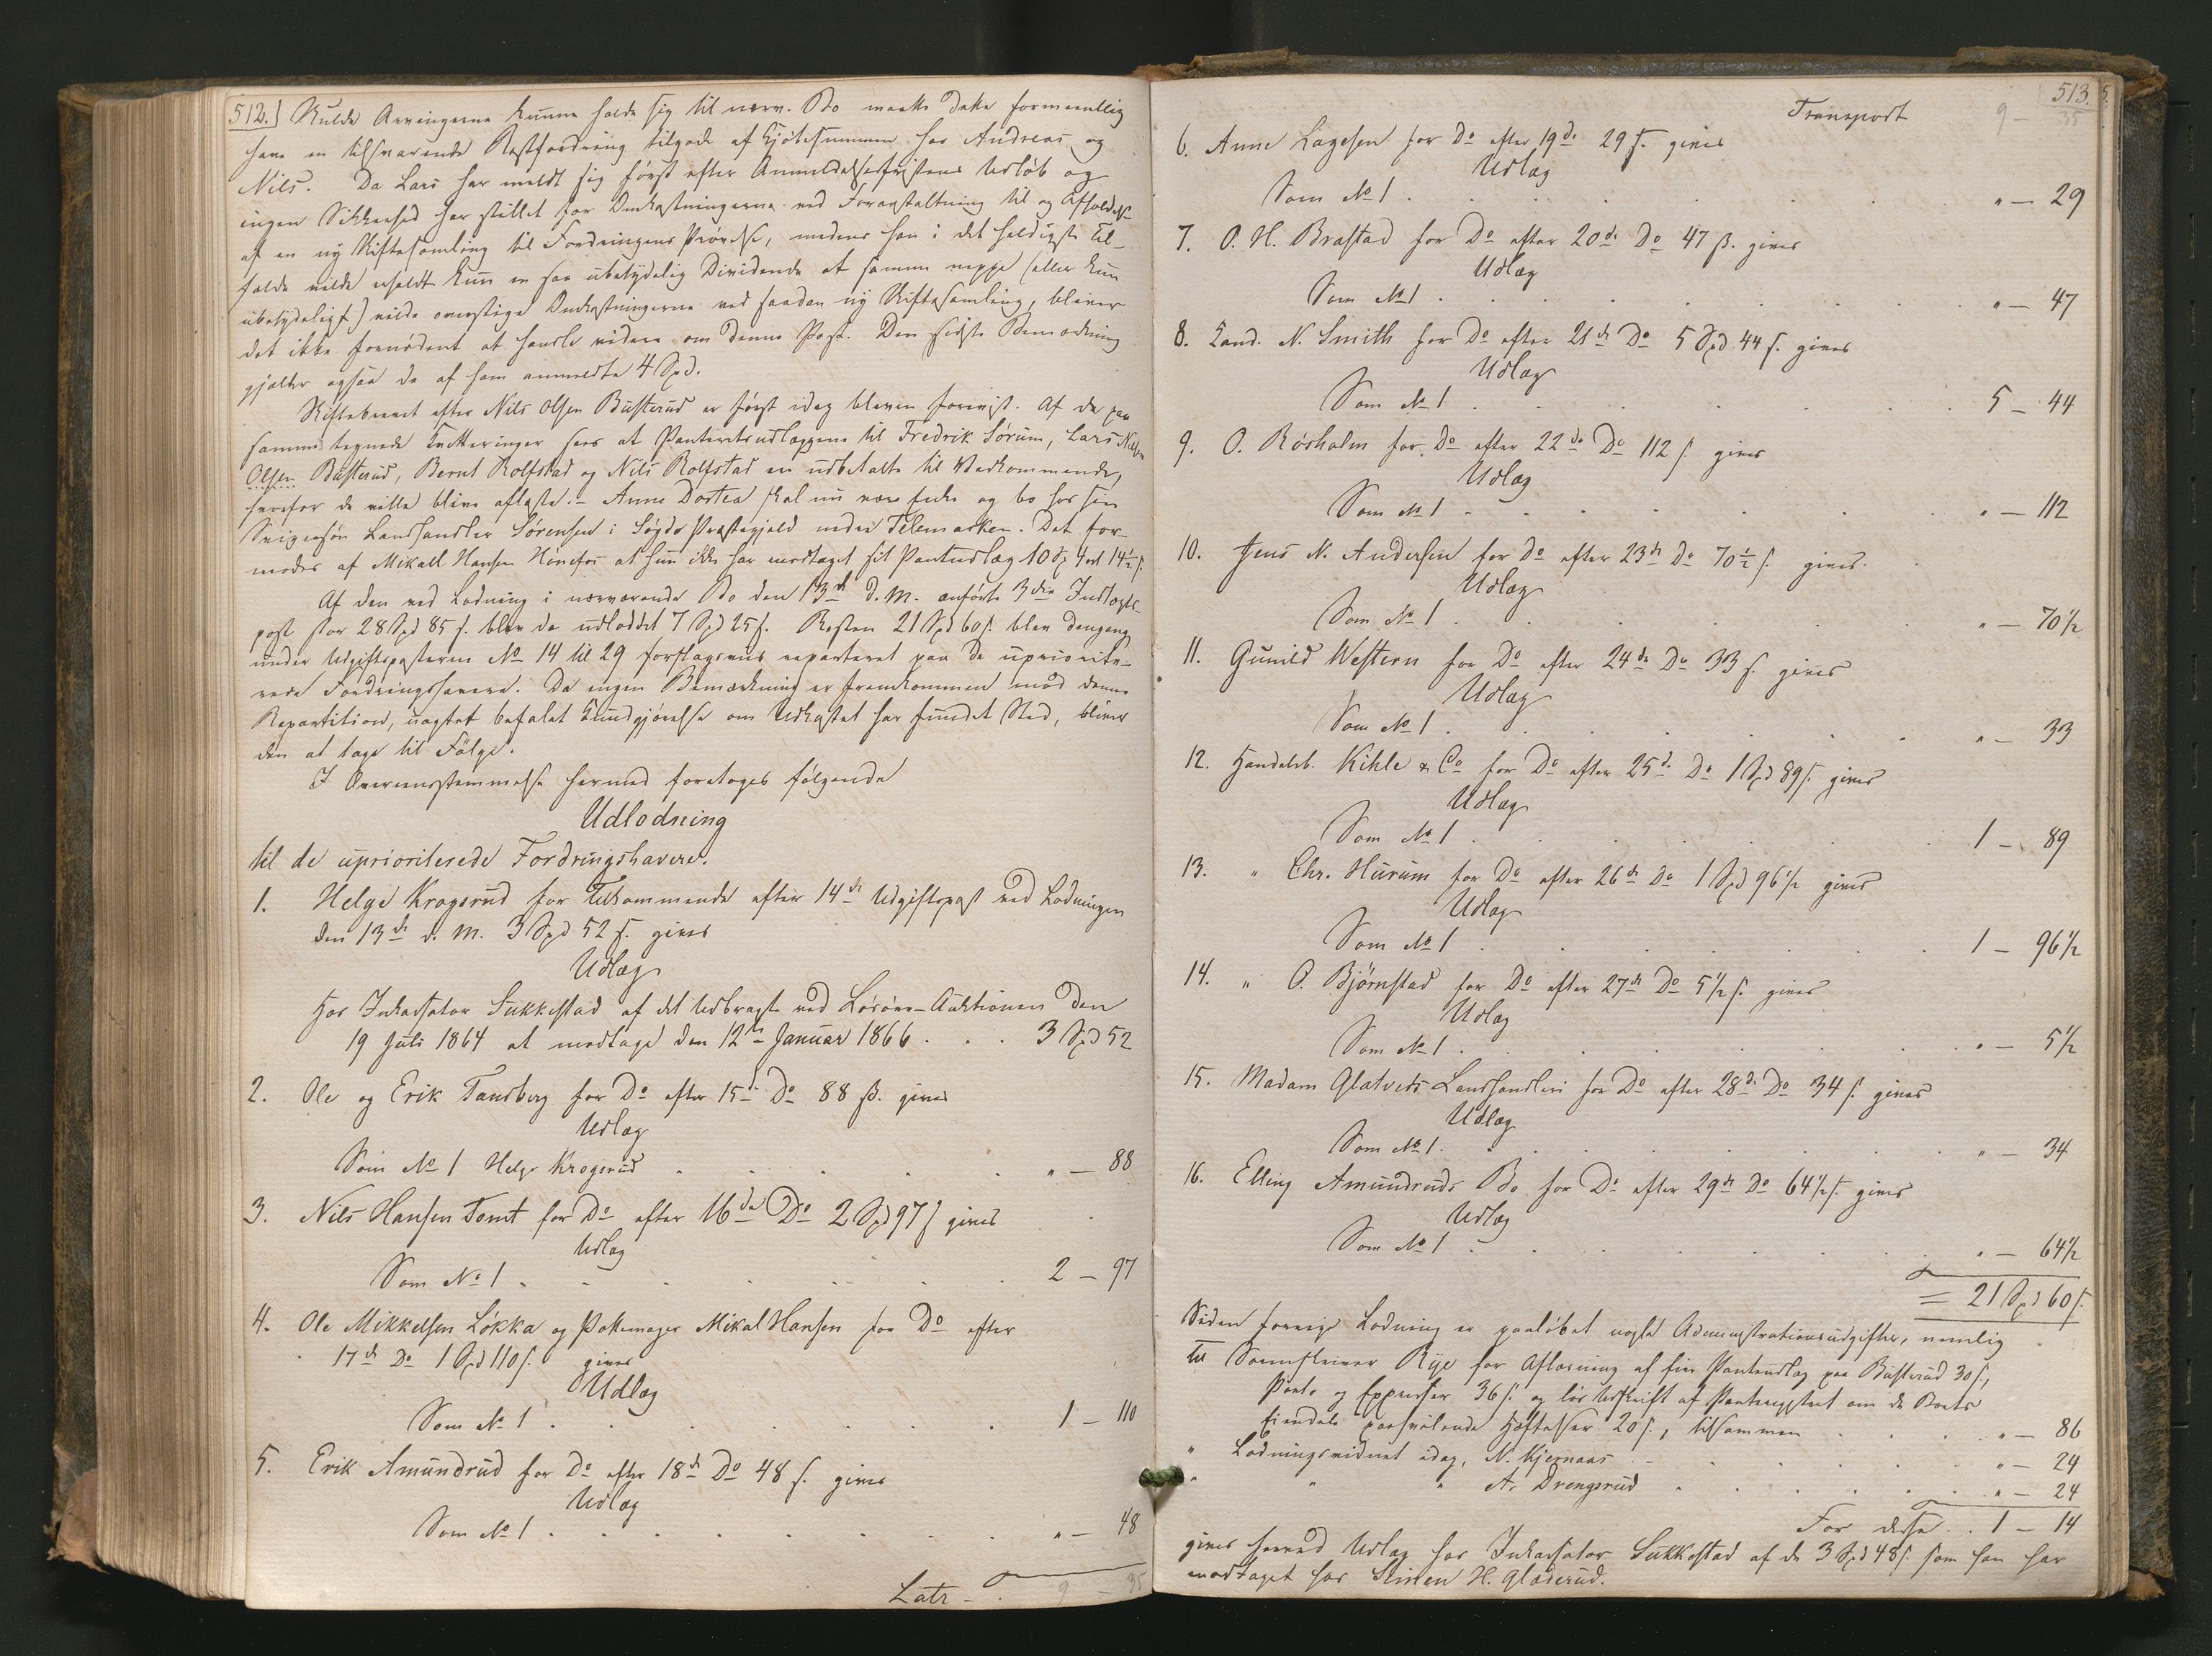 512.
Skulde Arvingerne kunne holde sig til nærv. Bo maatte dette formeentlig
have en tilsvarende Restfordring tilgode af Kjøbesummen hos Andreas og
Nils. Da Lars har meldt sig først efter Anmeldelsesfristens Udløb og
ingen Sikkerhed har stillet for Omkostningerne ved Foranstaltning til og Afholdelse
af en ny Skiftesamling til Fordringens Prøvelse, medens han i det heldigste Til-
fælde vilde erholdt kun en saa ubetydelig Dividende at samme neppe (eller kun
ubetydeligt) vilde overstige Omkostningerne ved saadan ny Skiftesamling, bliver
det ikke fornødent at handle videre om denne Post. Den sidste Bemærkning
gjælder ogsaa de af ham anmeldte 4 Spd.
Skiftebrevet efter Nils Olsen Busterud er først idag bleven forevist. Af de paa
samme tegnede Qvitteringer sees at Panteretsudlæggene til Fredrik Sørum, Lars Nilsen
Olsen Busterud, Bernt Rolfstad og Nils Rolfstad ere udbetalte til Vedkommende,
hvorfor de ville blive aflyste. - Anne Dortea skal nu være Enke og bo hos sin
Svigersøn Landhandler Sørensen i Præstegjeld nedre Telemarken. Det for-
modes af Mikael Hansen Hønefos at hun ikke har modtaget sit Panteudlæg 10 Sp 4 ort 14½ s.
Af den ved Lodning i nærværende Bo den 13de d. M. anførte 3die Indtægts-
post stor 28 Spd 85 s. blev da udloddet 7 Spd 25 s. Resten 21 Spd 60 s. blev dengang
under Udgiftsposterne No 14 til 29 forslagsvis reparteret paa de upriorite-
rede Fordringshavere. Da ingen Bemærkning er fremkommen mod denne
Repartition, uagtet befalet Kundgjørelse om Udkastet har fundet Sted, bliver
den at tage til Følge.
I Overensstemmelse hermed foretoges følgende
Udlodning
til de uprioriterede Fordringshavere.
1. Helge Krogsrud for Tilkommende efter 14de Udgiftspost ved Lodningen
den 13de d. M. 3 Spd 52 s. gives
Udlæg
hos Inkassator Sukkestad af det Udbragte ved Løsøre-Auktionen den
19 Juli 1864 at modtage den 12te Januar 1866 . . . 3 Spd 52
2. Ole og Erik Tandberg for Do efter 15de Do 88 ß. gives
Udlæg
Som No 1 Helge Krogsrud . . . . . " — 88
3. Nils Hansen Tomt for Do efter 16de Do 2 Spd 97 s gives
Udlæg
Som No 1 . . . . . . 2 — 97
4. Ole Mikkelsen Løkka og Mikal Hansen for Do efter
17de Do 1 Spd 110 s. gives
Udlæg
Som No 1 . . . . . . 1 — 110
5. Erik Amundrud for Do efter 18de Do 48 s. gives
Udlæg
Som No 1 . . . . . . " — 48
Latr . . 9 — 35
513.
Transport 9 — 35
6. Anne Lagesen for Do efter 19de 29 s. gives
Udlæg
Som No 1 . . . . . . " — 29
7. O. H. Brastad for Do efter 20de Do 47 ß. gives
Udlæg
Som No 1 . . . . . . " — 47
8. Cand. N. Smith for Do efter 21de Do 5 Spd 44 s. gives
Udlæg
Som No 1 . . . . . . 5 — 44
9. O. Røsholm for Do efter 22de Do 112 s. gives
Udlæg
Som No 1 . . . . . . " — 112
10. Jens N. Andersen for Do efter 23de Do 70½ s. gives.
Udlæg
Som No 1 . . . . . . " — 70½
11. Gunild Western for Do efter 24de Do 33 s. gives
Udlæg
Som No 1 . . . . . . " — 33
12. Handelsb. Kihle & Co for Do efter 25de Do 1 Spd 89 s. gives
Udlæg
Som No 1 . . . . . . 1 — 89
13. " Chr. Hurum for Do efter 26de Do 1 Spd 96½ gives
Udlæg
Som No 1 . . . . . . 1 — 96½
14. " O. Bjørnstad for Do efter 27de Do 5½ s. gives
Udlæg
Som No 1 . . . . . . " — 5½
15. Madam Glatveds Landhandleri for Do efter 28de Do 34 s. gives
Udlæg
Som No 1 . . . . . . " — 34
16. Elling Amundruds Bo for Do efter 29de Do 64½ s. gives
Udlæg
Som No 1 . . . . . . " — 64½
= 21 Spd 60 s.
Siden forrige Lodning er paaløbet nogle Administrationsudgifter, nemlig
til Sorenskriver Rye for Aflæsning af fire Panteudlæg paa Busterud 30 s.,
Porto og Expresser 36 s. og løs Udskrift af Panteregistret om de Boets
Eiendele paahvilende Hæftelser 20 s., tilsammen . . . " — 86
" Lodningsvidnet idag, N. Kjernaas . . . . . " — 24
" " " A. Drengsrud . . . . . " — 24
For disse . . 1 — 14
gives herved Udlæg hos Inkassator Sukkestad af de 3 Spd 48 s. som han har
modtaget hos Stinen H. Gladerud.